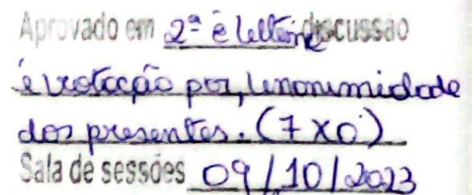 Aprovado em 2ª e última discussão
e votação por, unonimidade
dos presentes. (7 x 0)
Sala de sessões 09/10/2023